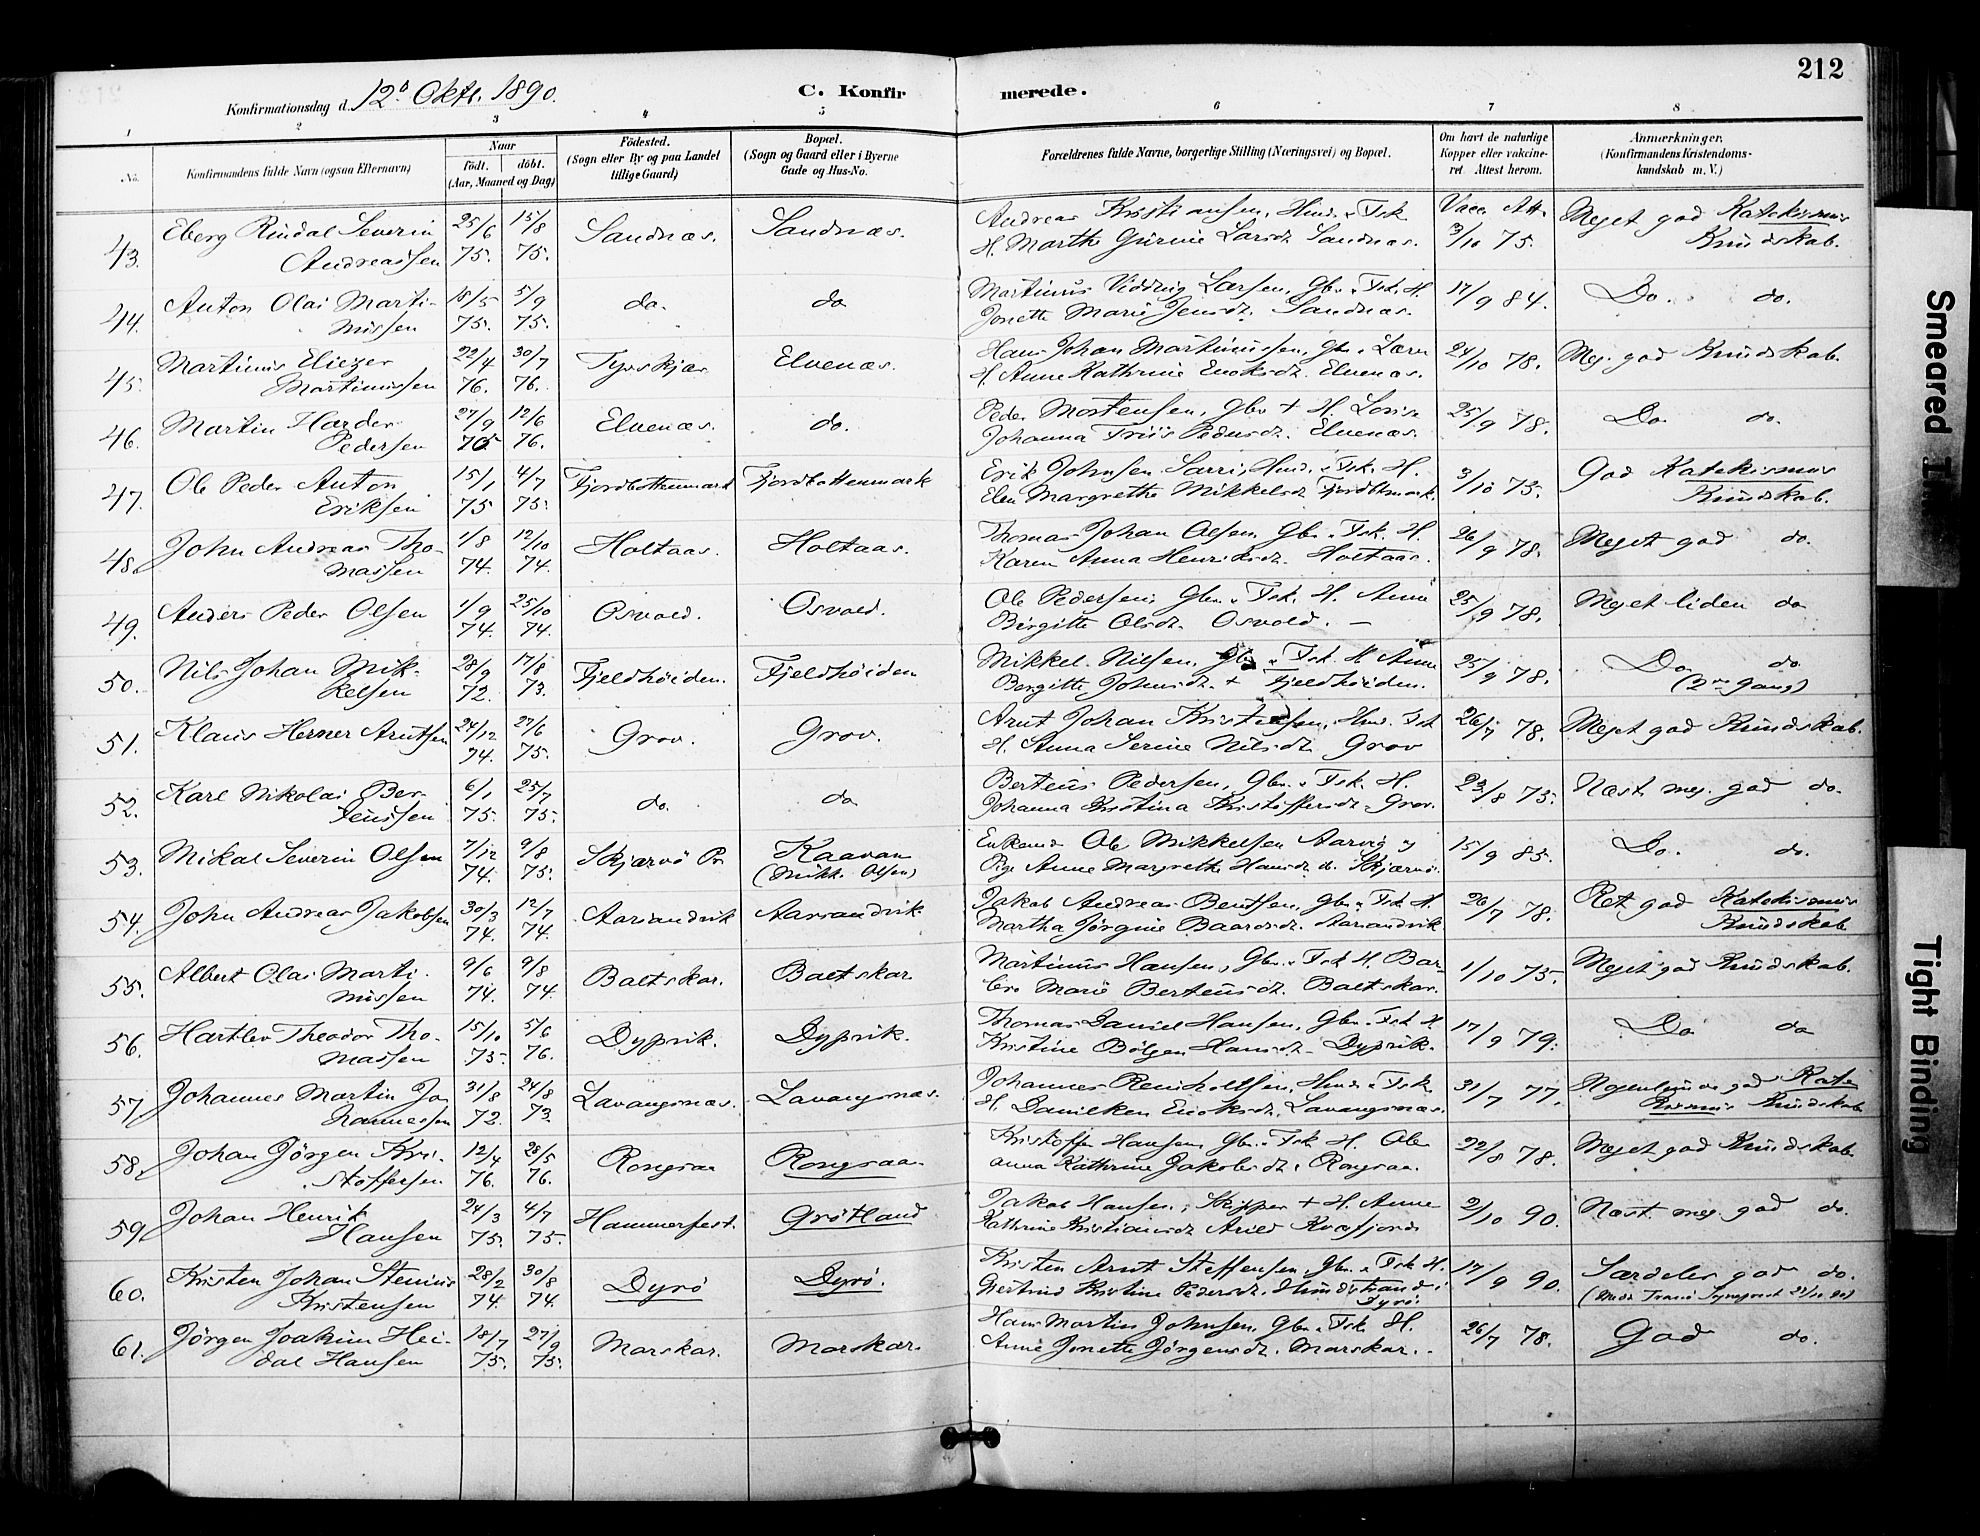 212
Konfirmationsdag d. 12' Oktr. 1890.
C. Konfirmerede.
1 2 3 4 5 6 7 8
No. Konfirmandens fulde Navn (ogsaa Efternavn) Naar født. døbt. (Aar, Maaned og Dag) Fødested. (Sogn eller By og paa Landet tillige Gaard) Bopæl. (Sogn og Gaard eller i Byerne Gade og Hus-No. Forældrenes fulde Navne, borgerlige Stilling (Næringsvei) og Bopæl. Om havt de naturlige Kopper eller vakcineret. Attest herom. Anmærkninger. (Konfirmandens Kristendomskundskab m. V.)
43. Eberg Rindal Severin 25/6 15/8 Sandnæs. Sandnæs. Andreas Kristiansen, Hmd. & Fsk. Vacc. Att. Meget god Katekismus
Andreassen 75. 75. H. Marthe Gurine Larsdt. Sandnæs. 3/10 75. Kundskab.
44. Anton Olai Marti- 18/5 5/9 do. do Martinus Vidding Larsen, Gbr. & Fsk. H. 17/9 84. Do. do.
nussen 75. 75. Jonette Marie Jensdt. Sandnæs.
45. Martinus Eliezer 22/4 30/7 Tyvskjær Elvenæs. Hans Johan Martinussen, Gbr. & Lærer 24/10 78. Meg. god Kundskab.
Martinussen 76. 76. H. Anne Kathrine Enoksdt. Elvenæs.
46. Martin Harder 27/9 12/6 Elvenæs. do. Peder Mortensen, Gbr + H. Lovise 25/9 78. Do do.
Pedersen 75 76. Johanna Friis Pedersdt. Elvenæs.
47. Ole Peder Anton 15/1 4/7 Fjordbottenmark Fjordbottenmark Erik Johnsen Sarri, Hmd. & Fsk. H. 3/10 75. God Katekismus
Eriksen 75 75. Elen Margrethe Mikkelsdt. Fjordbtmark. Kundskab.
48. John Andreas Tho- 1/8 12/10 Holtaas. Holtaas. Thomas Johan Olsen Gbr. & Fsk. H. 26/9 78. Meget god do.
massen 74. 74. Karen Anna Henriksdt. Holtaas.
49. Anders Peder Olsen 1/9 25/10 Osvold. Osvold. Ole Pedersen, Gbr. & Fsk. H. Anne 25/9 78. Meget liden do
74. 74. Birgitte Olsdt. Osvold. —
50. Nils Johan Mik- 28/9 17/8 Fjeldhöiden. Fjeldhöiden Mikkel Nilsen, Gbr. & Fsk. H. Anne 25/9 78. Do do.
kelsen 72. 73. Bergitte Johnsdt. + Fjeldhöiden. (2den Gang)
51. Klaus Herner Arntsen 24/12 27/6 Grov. Grov. Arnt Johan Kristensen, Hmd. Fsk 26/7 78. Meget god Kundskab.
74. 75. H. Anna Serine Nilsdt. Grov
52. Karl Nikolai Ber- 6/1 25/7 do. do Berteus Pedersen, Gbr. & Fsk. H. 23/8 75. Næst meg. god do.
teussen 75. 75. Johanna Kristina Kristoffersdt. Grov.
53. Mikal Severin Olsen 7/12 9/8 Skjærvö Pr Kaavan Enkemd. Ole Mikkelsen Aarvig og 15/9 85. Do. do.
74. 75. (Mikk. Olsen) Pige Anne Margrethe Hansdt. Skjærvö.
54. John Andreas Jakobsen 30/3 12/7 Aarsandvik Aarsandvik Jakob Andreas Bentsen, Gbr & Fsk H. 26/7 78. Ret god Katekismus
74. 74. Martha Jörgine Baardsdt. Aarsandvik Kundskab
55. Albert Olai Marti- 9/6 9/8 Baltskar. Baltskar. Martinus Hansen, Gbr. & Fsk H. Bar- 1/10 75. Meget god Kundskab.
nussen 74. 74. bro Marie Berteusdt. Baltskar.
56. Hartlev Theodor Tho- 15/10 5/6 Dyprik. Dyprik. Thomas Daniel Hansen, Gbr. & Fsk H. 17/9 79. Do do
massen 75. 76. Kristine Bölgen Hansdt. Dyprik.
57 Johannes Martin Jo 31/8 24/8 Lavangsnæs. Lavangsnæs. Johannes Reinholtsen, Hmd. & Fsk. 31/7 77. Nogenlunde god Kate
hannessen 72. 73. H. Danilken Enoksdt. Lavangsnæs. kismus Kundskab
58. Johan Jörgen Kri- 12/4 28/5 Rongsaa Rongsaa Kristoffer Hansen Gbr. & Fsk H. Ole 22/8 78. Meget god Kundskab
stoffersen 76. 76. anna Kathrine Jakobsdt. Rongsaa.
59 Johan Henrik 24/3 4/7 Hammerfest. Grötland Jakob Hansen, Skipper + H. Anne 2/10 90. Næst meg. god do.
Hansen 75. 75. Kathrine Kristiansdt Aried Kvæfjord
60. Kristen Johan Stenius 28/2 30/8 Dyrö Dyrö. Kristen Arnt Steffensen Gbr. & Fsk H. 17/9 90. Særdeles god do.
Kristensen 74. 74. Gertrud Kristine Pedersdt. Hundstrand i Dyrö
61. Jörgen Joakim Hei- 18/7 27/9 Marskar. Marskar. Hans Martin Johnsen, Gbr. & Fsk H. 26/7 78. God do.
dal Hansen 75. 75. Anne Jonette Jörgensdt. Marskar.
Smeared
Tight Binding